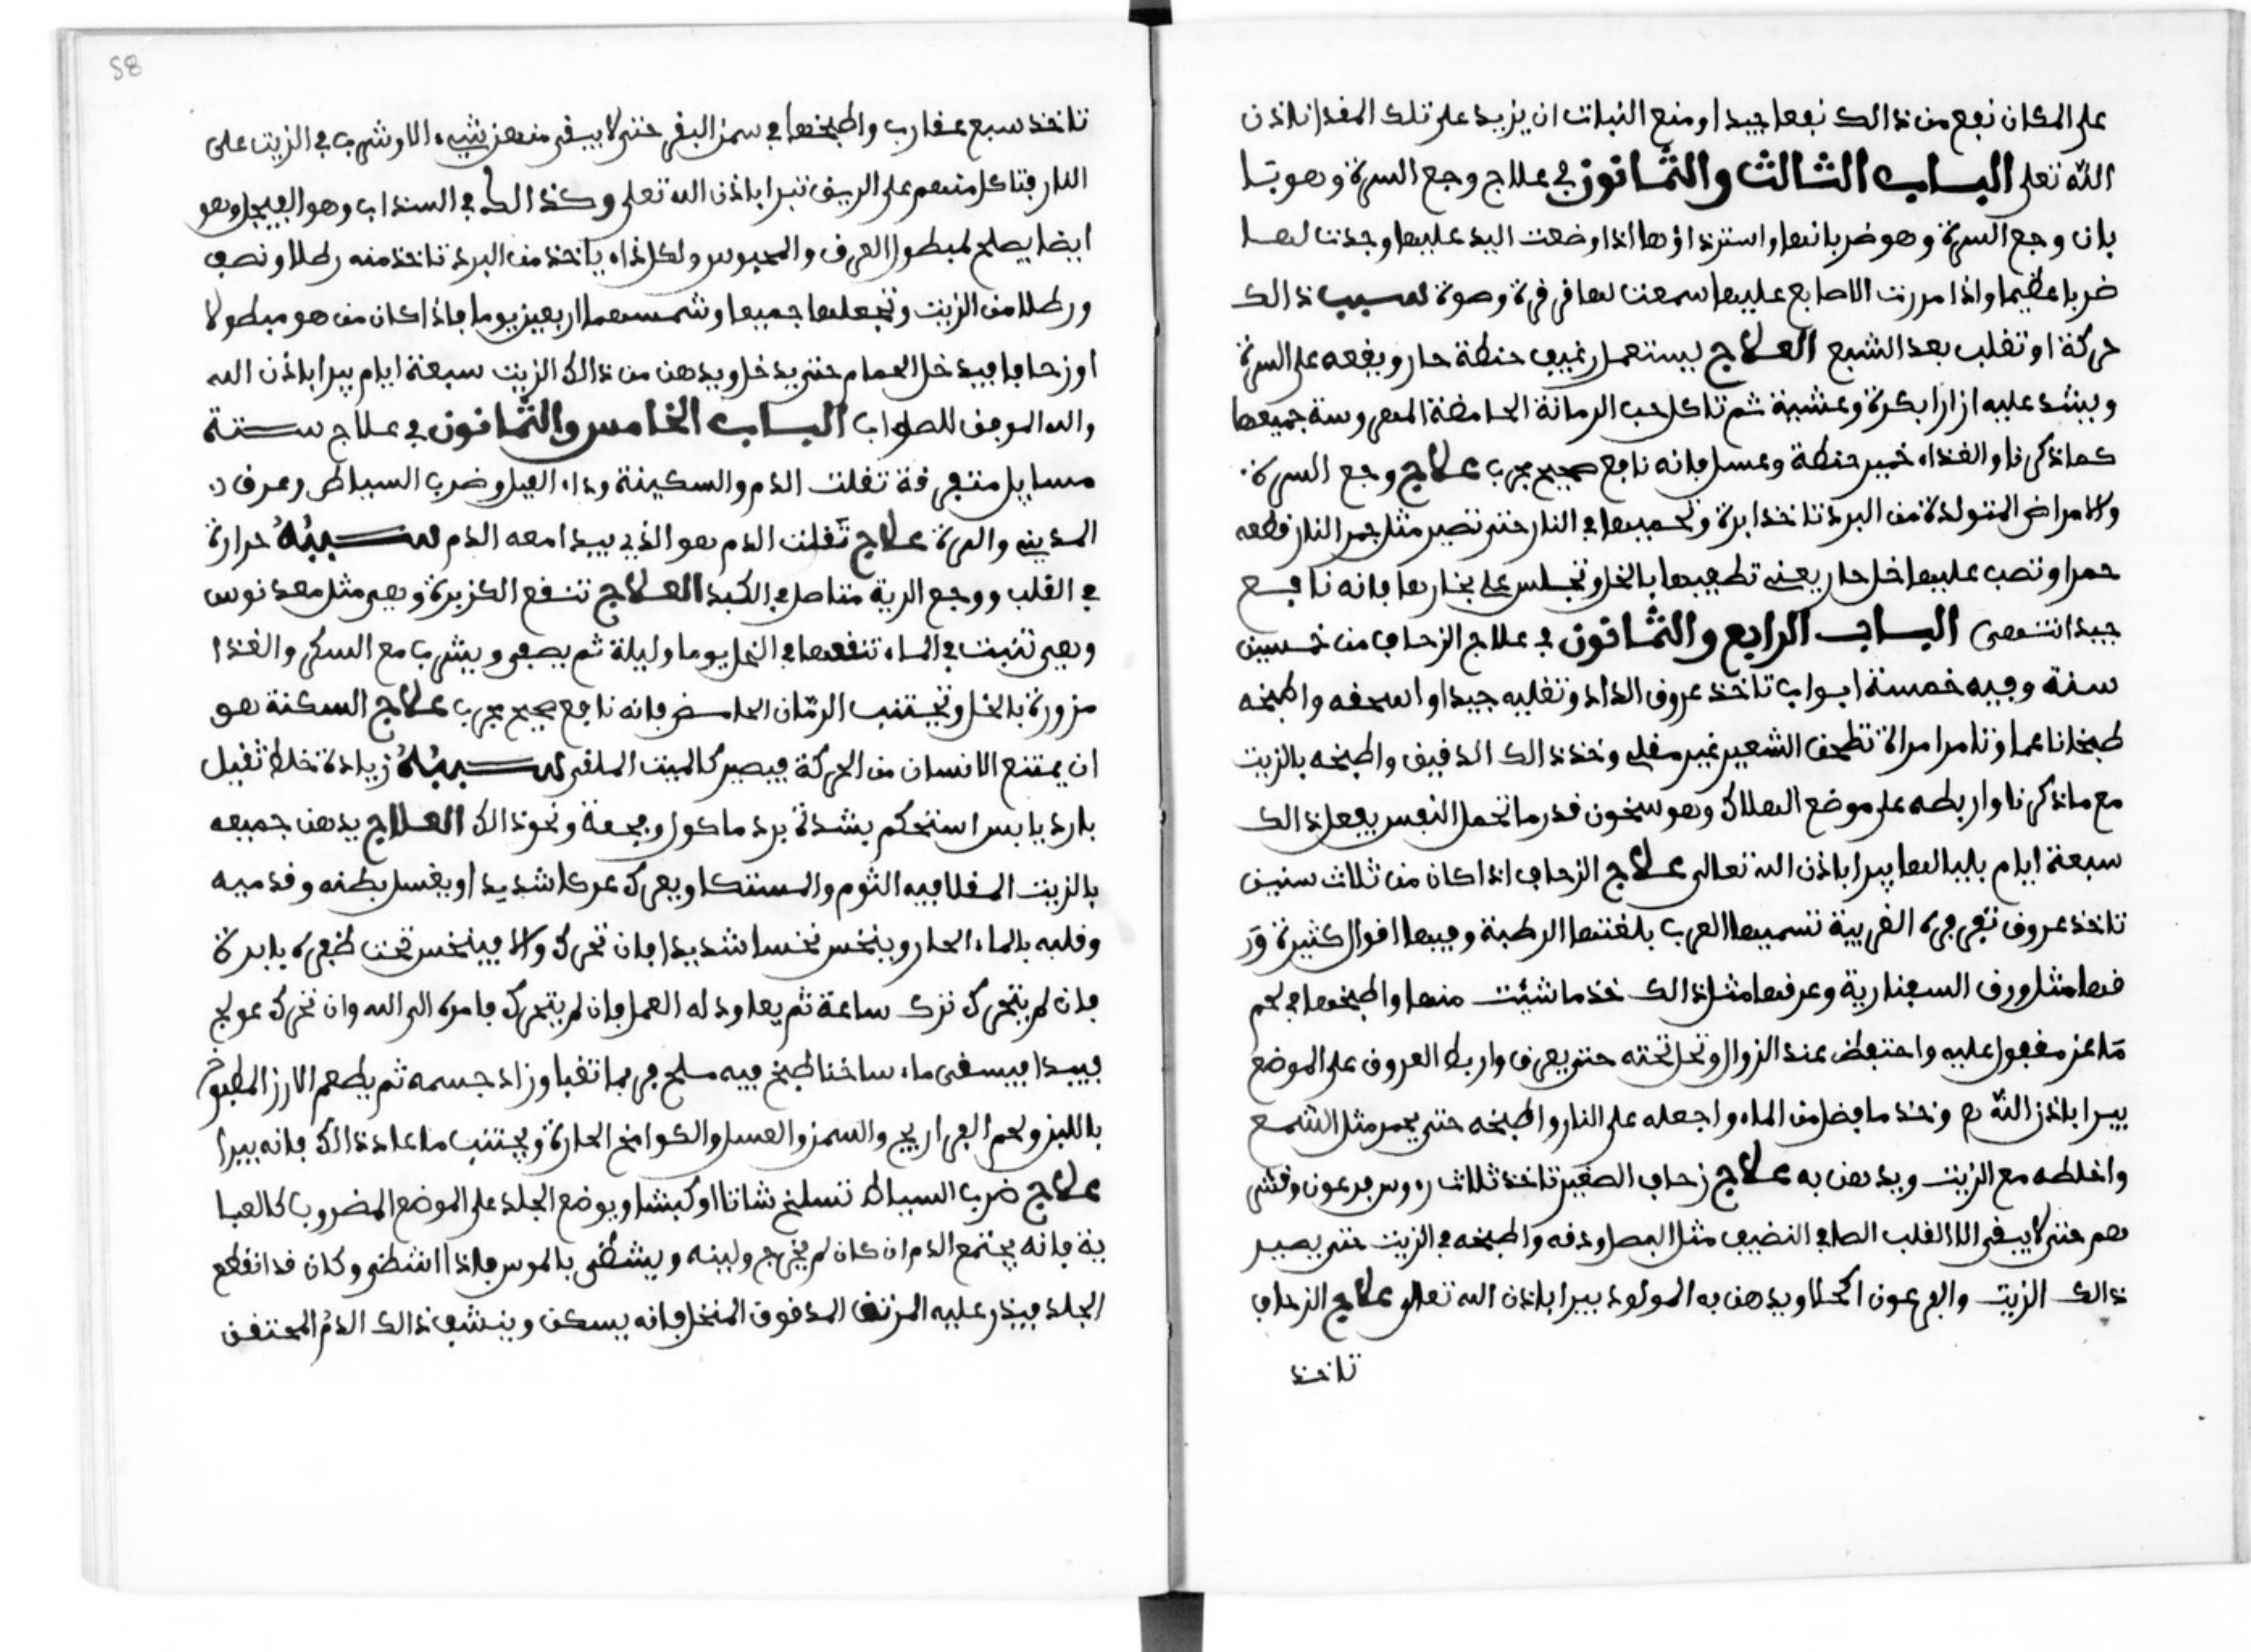 على المكان نفع من ذالك نفعا جيدا ومنع النبات ان يزيد على تلك المقدار باذن
الله تعلى الباب الثالث والثمانون في علاج وجع السرة وهو
بان وجع السرة وهو ضربانها واسترذاؤها اذا وضعت اليد عليها وجدت لها
ضربا عظيما واذا مررت الاصابع عليها سمعت لها قرقرة وصوة لسبب ذالك
حركة او تقلب بعد الشبع العلاج يستعمل رغيف حنطة حار ويفعه على السرة
ويشد عليه ازارا بكرة وعشية ثم تاكل حب الرمانة الحامضة المهروسة جميعها
كما ذكرنا والغذاء خمير حنطة وعسل فانه نافع صحيح مجرب علاج وجع السرة
والامراض المتولدة من البرد تاخذ ابرة وتحميها في النار حتى تصير مثل جمر النار قطعه
حمرا وتصب عليها خل حار يعني تطفيها بالخل وتجلس على بخارها فانه نافع
جيدا انتهى الباب الرابع والثمانون في علاج الزحاف من خمسين
سنة وفيه خمسة ابواب تاخذ عروق الداد وتقليه جيدا او اسحقه واطبخه
طبخا ناعما وتامر امراة تطحن الشعير غير مقلي وخذ ذالك الدقيق واطبخه بالزيت
مع ما ذكرنا واربطه على موضع الهلاك وهو سخون قدر ما تحمل النفس يفعل ذالك
سبعة ايام بلياليها يبرا باذن الله تعالى علاج الزحاف اذا كان من ثلاث سنين
تاخذ عروق تفرفرة القريبة تسميها العرب بلغتها الرطبة وفيها اقوال كثيرة وَر
قها مثل ورق السفنارية وعرفها مثل ذالك خذ ما شئت منها واطبخها في لحم
مَاعز مفعول عليه واحتفظ عند الزوال وتحل تحته حتى يعرق واربط العروق على الموضع
يبرا باذن الله وخذ ما فضل من الماء واجعله على النار واطبخه حتى يحمر مثل الشمع
واخلطه مع الزيت ويدهن به علاج زحاف الصغير تاخذ ثلاث رءوس فرعون وقشر
هم حتى لا يبقى الا القلب الصافي النضيف مثل البصل ودقه واطبخه في الزيت حتى يصير
ذالك الزيت والفرعون اكحلا ويدهن به المولود يبرا باذن الله تعالى علاج الزحاف
تاخذ
58
تاخذ سبع عقارب واطبخها في سمن البقر حتى لا يبقى منهن شيء الا وشرب في الزيت على
النار فتاكل منهم على الريق تبرا باذن الله تعلى وكذالك في السنداب وهو الفيجل وهو
ايضا يصلح لمبطول العرق والمحبوس ولكل اذاه ياخذ من البرد تاخذ منه رطلا ونصف
ورطلا من الزيت وتجعلها جميعا وشمسهما اربعين يوما فاذا كان من هو مبطولا
او زحافا فيدخل الحمام حتى يدخل ويدهن من ذالك الزيت سبعة ايام يبرا باذن الله
والله الموفق للصواب الباب الخامس والثمانون في علاج ستة
مسايل متفرقة تفلت الدم والسكينة وداء الفيل وضرب السياط وعرق
المديني والهرة علاج تَفلت الدم هو الذي يبدا معه الدم سببُهُ حرارة
في القلب ووجع الرية متاصل في الكبد العلاج تنقع الكزبرة وهي مثل معدنوس
وهي تنبت في الماء تنقعها في الخل يوما وليلة ثم يصفى ويشرب مع السكر والغذا
مزورة بالخل وتجتنب الرمّان الحامض فانه نافع صحيح مجرب علاج السكتة هو
ان يمتنع الانسان من الحركة فيصير كالميت الملقى سببُهُ زيادة خلط ثقيل
بارد يابس استحكم بشدة برد ماكول وفجعة ونحو ذالك العلاج يدهن جميعه
بالزيت المغلا فيه الثوم والمستكا ويعرك عركا شديدا ويغسل بطنه وقدميه
وقلبه بالماء الحار وينخس نخسا شديدا فان تحرك والا فينخس تحت ظفره بابرة
فان لم يتحرك ترك ساعة ثم يعاود له العمل فان لم يتحرك فامره الى الله وان تحرك عولج
فيبدا فيسقى ماء ساخنا طبخ فيه سلح فربما تقيا وزاد جسمه ثم يطعم الارز المطبوخ
باللبن ولحم الفراريج والسمن والعسل والكوامخ الحارة ويجتنب ما عادا ذالك فانه يبرا
علاج ضرب السياط تسلخ شاتا او كبشا ويوضع الجلد على الموضع المضروب كالعبا
ية فانه يجتمع الدم ان كان لم يخرج ولينه ويشطى بالموس فاذا انشطى وكان قد انقطع
الجلد فيذر عليه المرتك المدقوق المنخل فانه يسكن وينشف ذالك الدمُ المحتقن